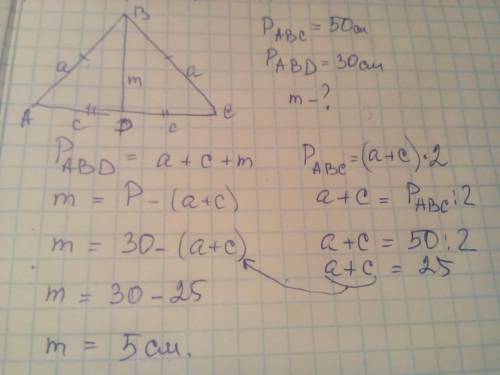 B
a
m
a
A
c
D
c
C
P ABC = 50см
P ABD = 30см
m - ?
P ABD = a + c + m
m = P - (a+c)
m = 30 - (a+c)
m = 30 - 25
m = 5 см.
P ABC = (a+c)·2
a+c = P ABC : 2
a+c = 50 : 2
a+c = 25